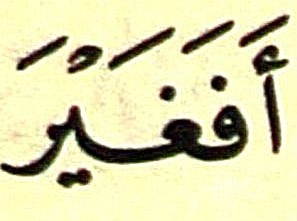 أَفَغَيْرَ